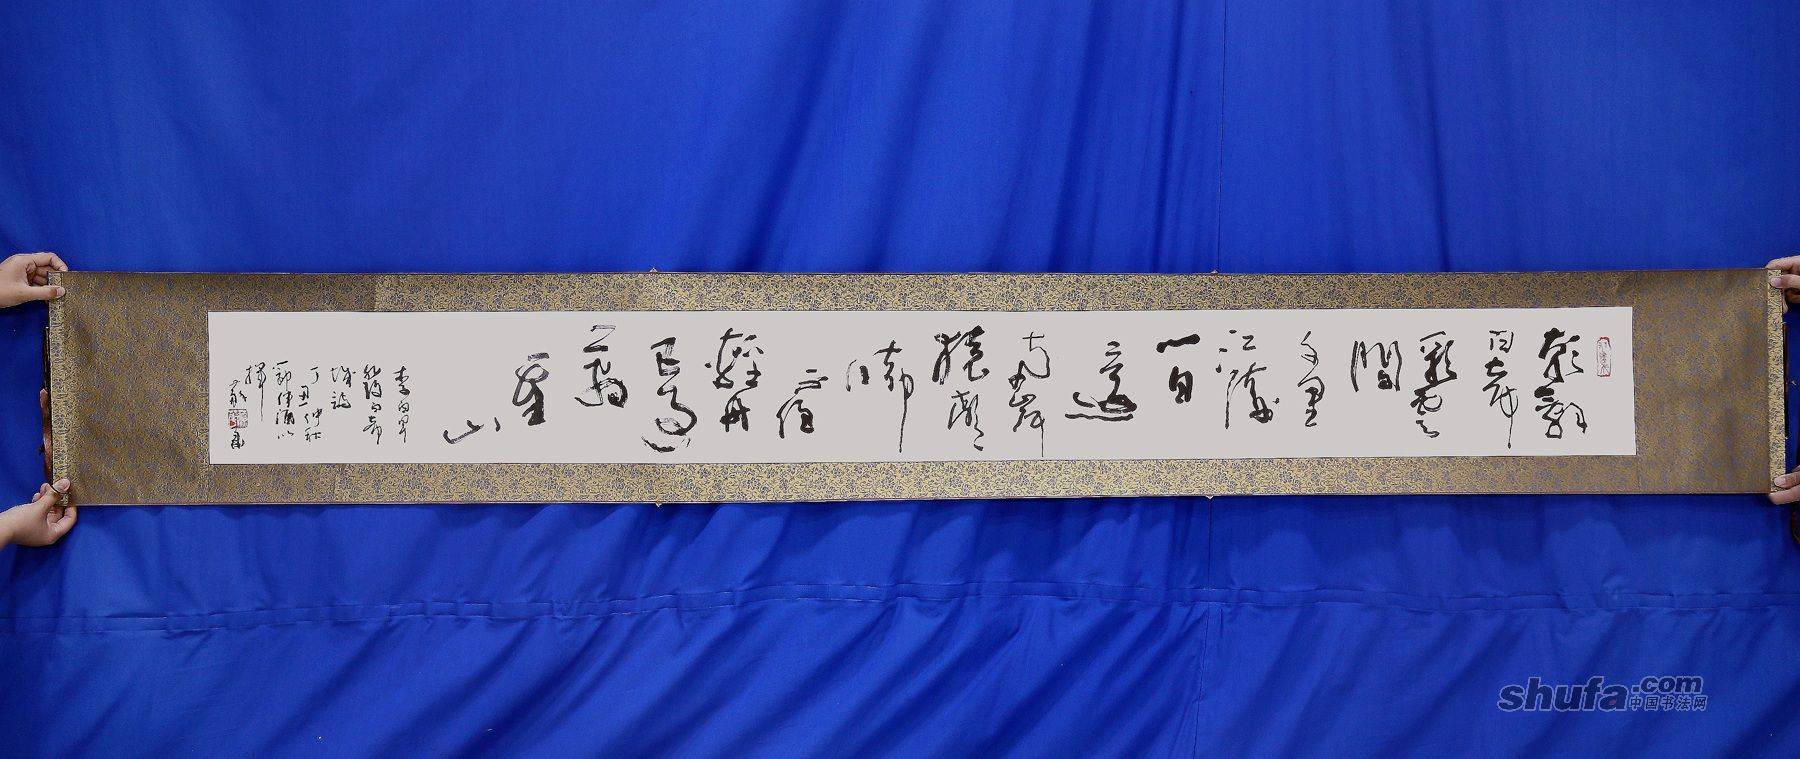 朝辭
白帝
彩雲
間
千里
江陵
一日
還
兩岸
猿聲
啼
不住
輕舟
已過
萬
重
山
李白早
發白帝
城詩
丁丑仲秋
揮
shufa.com
中国书法网